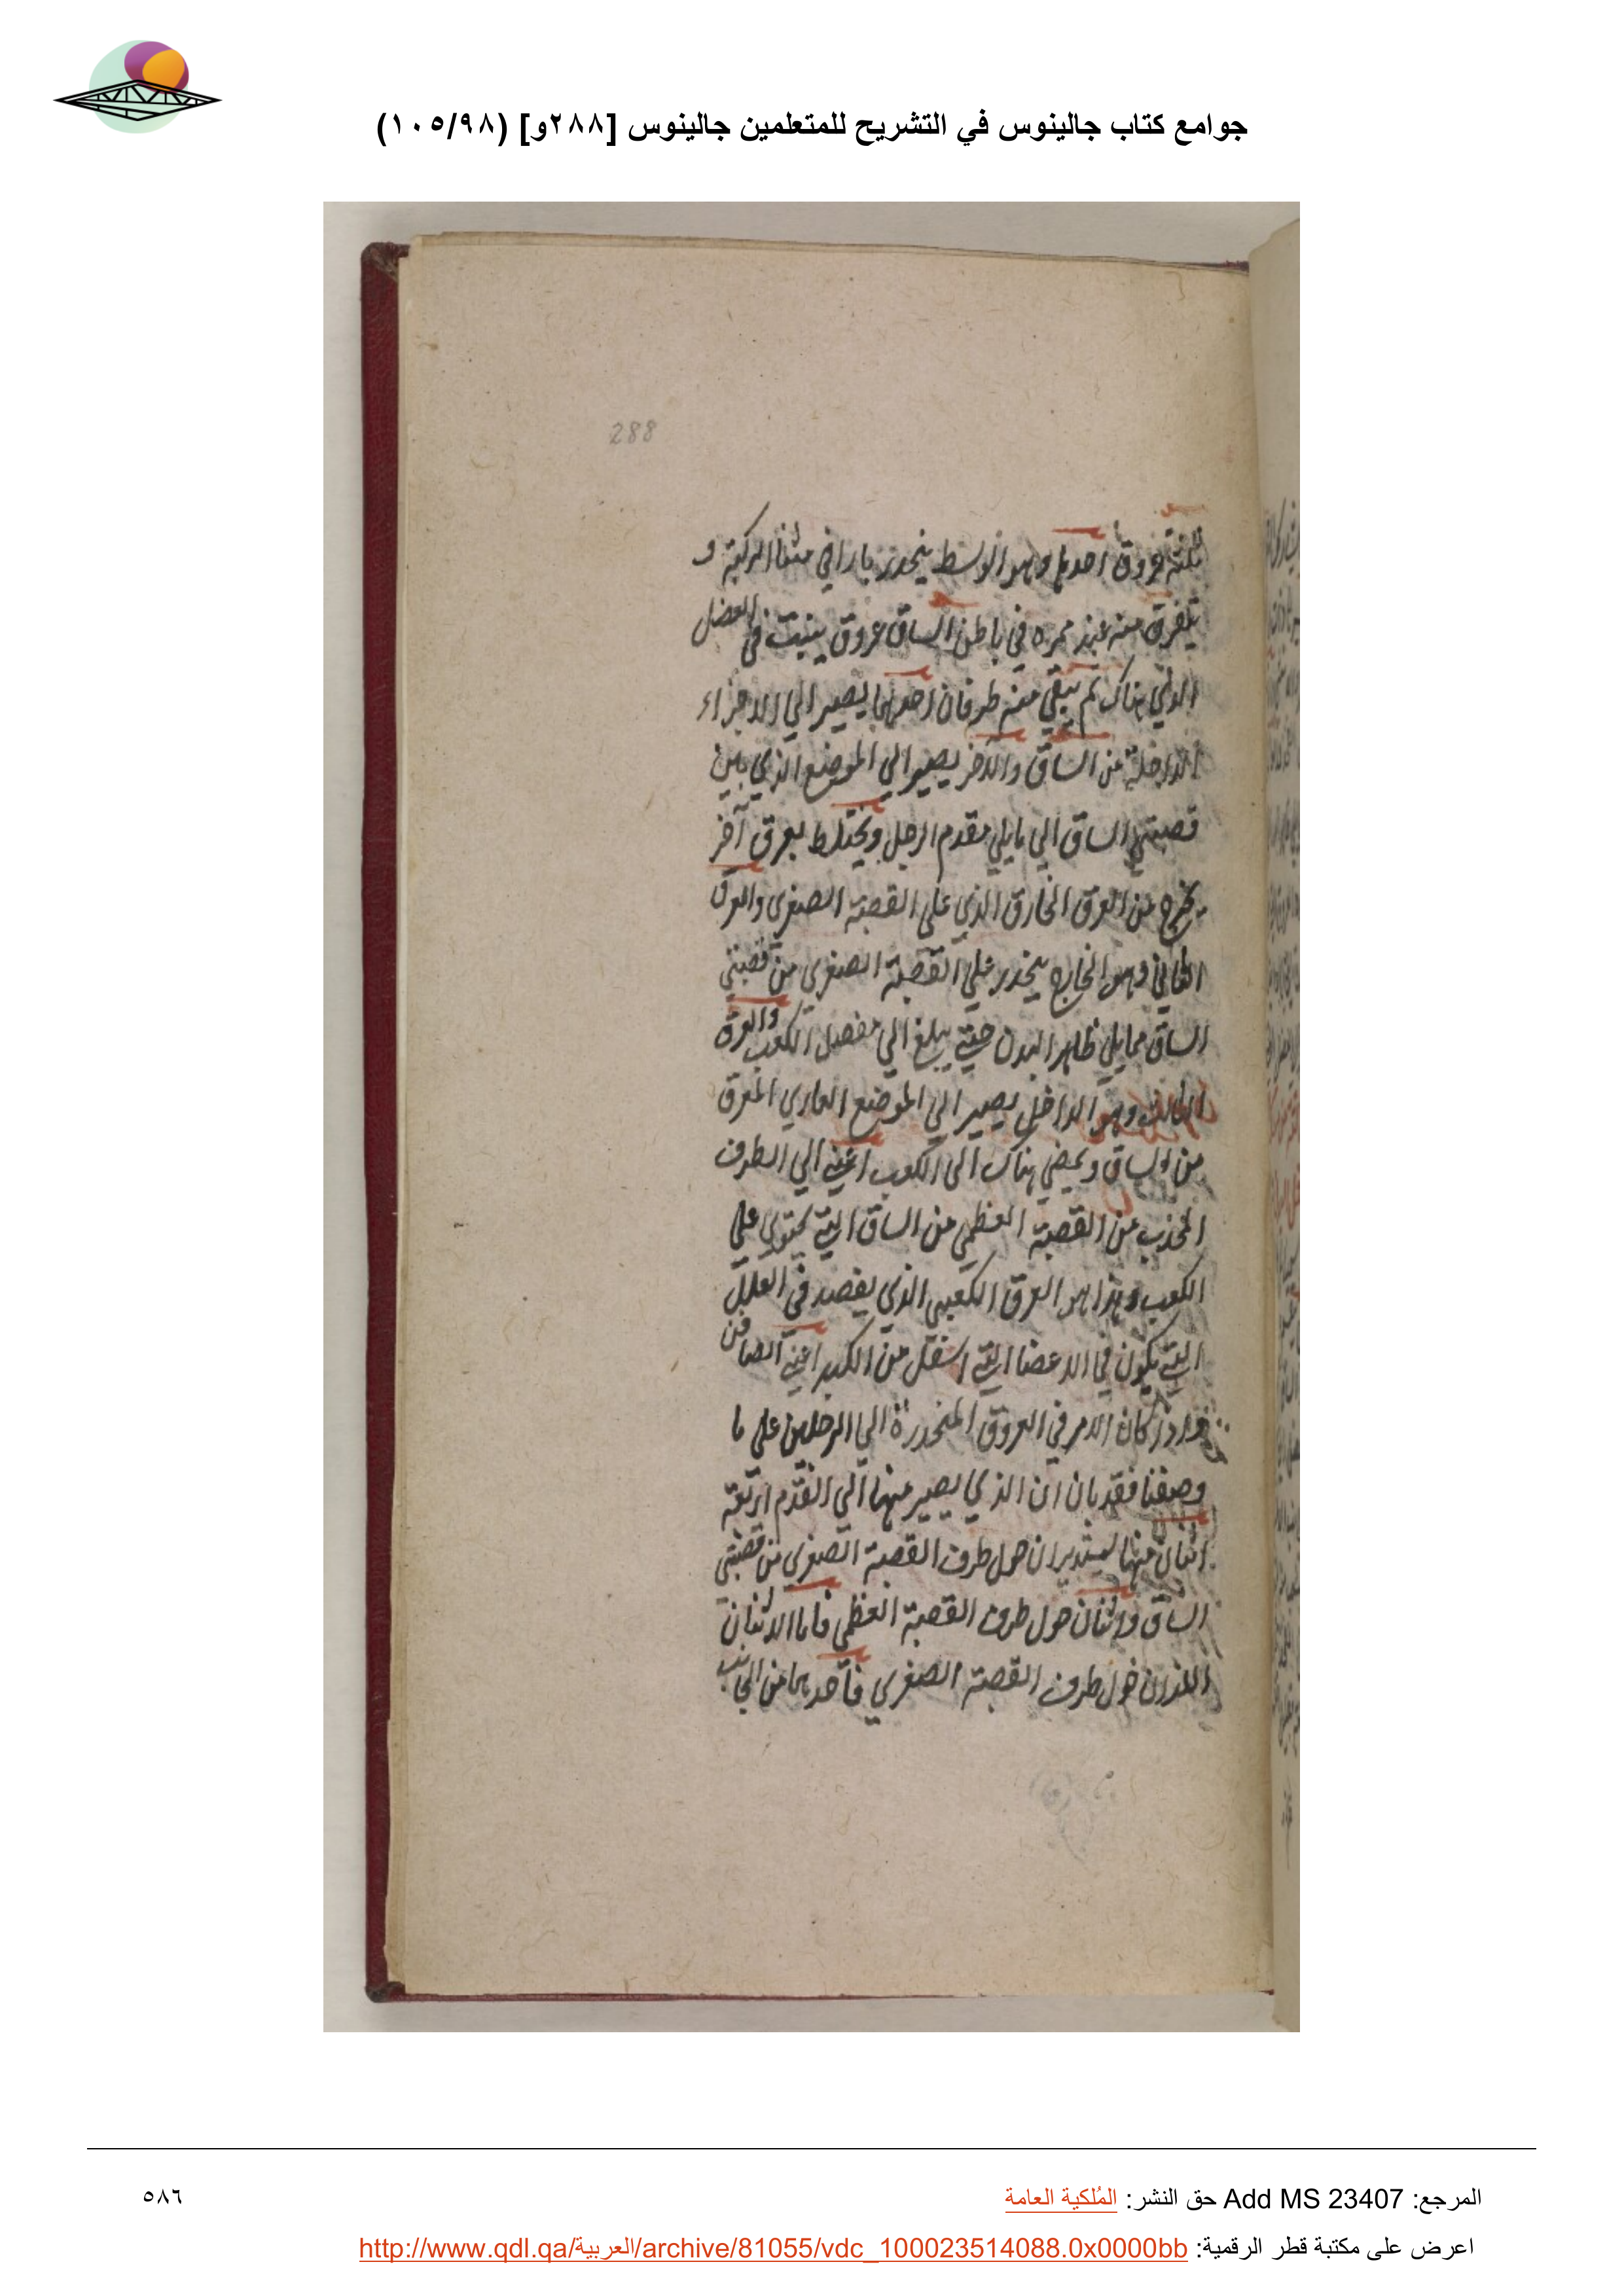 جوامع كتاب جالينوس في التشريح للمتعلمين جالينوس [٢٨٨و] (١٠٥/٩٨)
288
ثلثة عروق احدها وهو الوسط ينحدر بازاء مثنا الركبة و
يتفرق منه عند ممره في باطن الساق عروق ينبت في العضل
الذي هناك ثم يبقي منه طرفان احدهما يصير الي الاجزاء
الداخلة من الساق والاخر يصير الي الموضع الذي بين
قصبتي الساق الي ما يلي مقدم الرجل ويختلط بعرق آخر
يخرج من العرق الخارق الذي علي القصبة الصغري والعرق
الثاني وهو الخارج ينحدر علي القصبة الصغري من قصبتي
الساق مما يلي ظاهر البدن حتي يبلغ الي مفصل الكعب والعرق
الثالث وهو الداخل يصير الي الموضع العاري المعرق
من الساق ويمضي هناك الي الكعب اعني الي الطرف
المحدب من القصبة العظمي من الساق التي يحتوي علي
الكعب وهذا هو العرق الكعبي الذي يفصد في العلل
التي يكون في الاعضا التي اسفل من الكبد اعني الصافن
واذ كان الامر في العروق المنحدرة الي الرجلين علي ما
وصفنا فقد بان ان الذي يصير منها الي القدم اربعة
اثنان منها يستديران حول طرف القصبة الصغري من قصبتي
الساق واثنان حول طرف القصبة العظمي فاما الاثنان
اللذان حول طرف القصبة الصغري فاحدهما من الجانب
المرجع: Add MS 23407 حق النشر: المُلكية العامة
٥٨٦
اعرض على مكتبة قطر الرقمية: http://www.qdl.qa/العربية/archive/81055/vdc_100023514088.0x0000bb